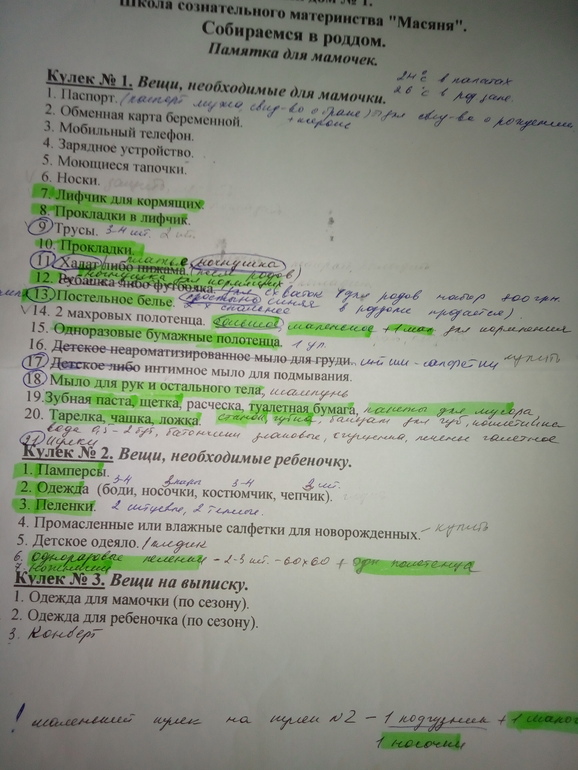 дом № 1.
Школа сознательного материнства "Масяня".
Собираемся в роддом.
Памятка для мамочек.
24°С в палатах
26°С в родзале.
Кулек № 1. Вещи, необходимые для мамочки.
1. Паспорт. (паспорт мужа свид-во о браке) для свид-во о рождении
2. Обменная карта беременной.
3. Мобильный телефон.
4. Зарядное устройство.
5. Моющиеся тапочки.
6. Носки.
7. Лифчик для кормящих
8. Прокладки в лифчик.
9 Трусы. 3-4 шт. 2 шт.
10. Прокладки.
11 Халат либо пижама ночнушка (после родов)
12. Рубашка либо футболка.
13. Постельное белье.
14. 2 махровых полотенца. большое, маленькое + 1 мал для кормления
15. Одноразовые бумажные полотенца. 1 уп.
16. Детское неароматизированное мыло для груди.
17. Детское либо интимное мыло для подмывания. купить
18 Мыло для рук и остального тела, шампунь
19.Зубная паста, щетка, расческа, туалетная бумага, пакеты для мусора
20. Тарелка, чашка, ложка бальзам для губ,
вода батончики злаковые, сгущенка, печенье галетное
Кулек № 2. Вещи, необходимые ребеночку.
1. Памперсы.
3-4 3 пары 3-4 3 шт.
2. Одежда (боди, носочки, костюмчик, чепчик).
3. Пеленки. 2 ситцевые, 2 теплые.
4. Промасленные или влажные салфетки для новорожденных. – купить
5. Детское одеяло.
6. одноразовые пеленки – 2-3 шт. – 60х60 +
7.
Кулек № 3. Вещи на выписку.
1. Одежда для мамочки (по сезону).
2. Одежда для ребеночка (по сезону).
3. Конверт
! маленький кулек на кулек №2 – 1 подгузник + 1
1 носочки